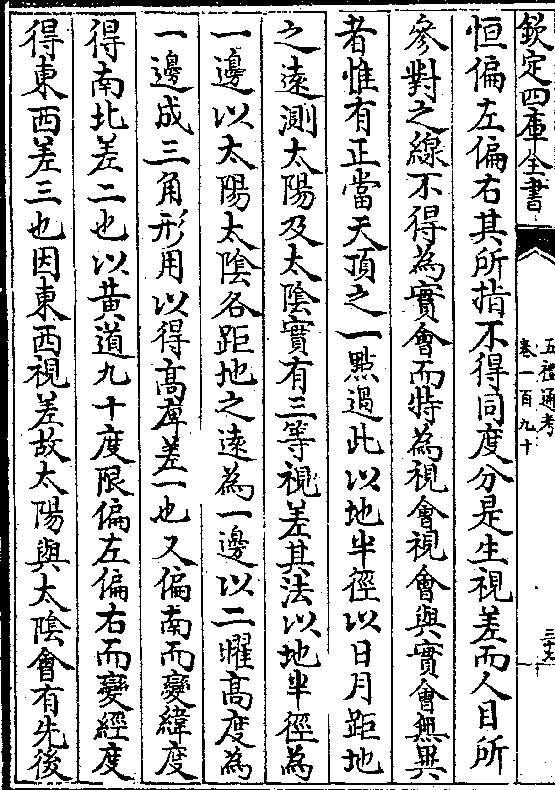 欽定四庫全書
五禮通考
卷一百九十
恒偏左偏右其所指不得同度分是生視差而人目所
參對之線不得為實會而特為視會視會與實會無異
者惟有正當天頂之一點過此以地半徑以日月距地
之遠測太陽及太陰實有三等視差其法以地半徑為
一邊以太陽太陰各距地之遠為一邊以二曜高度為
一邊成三角形用以得高庳差一也又偏南而變緯度
得南北差二也以黄道九十度限偏左偏右而變經度
得東西差三也因東西視差故太陽與太陰會有先後